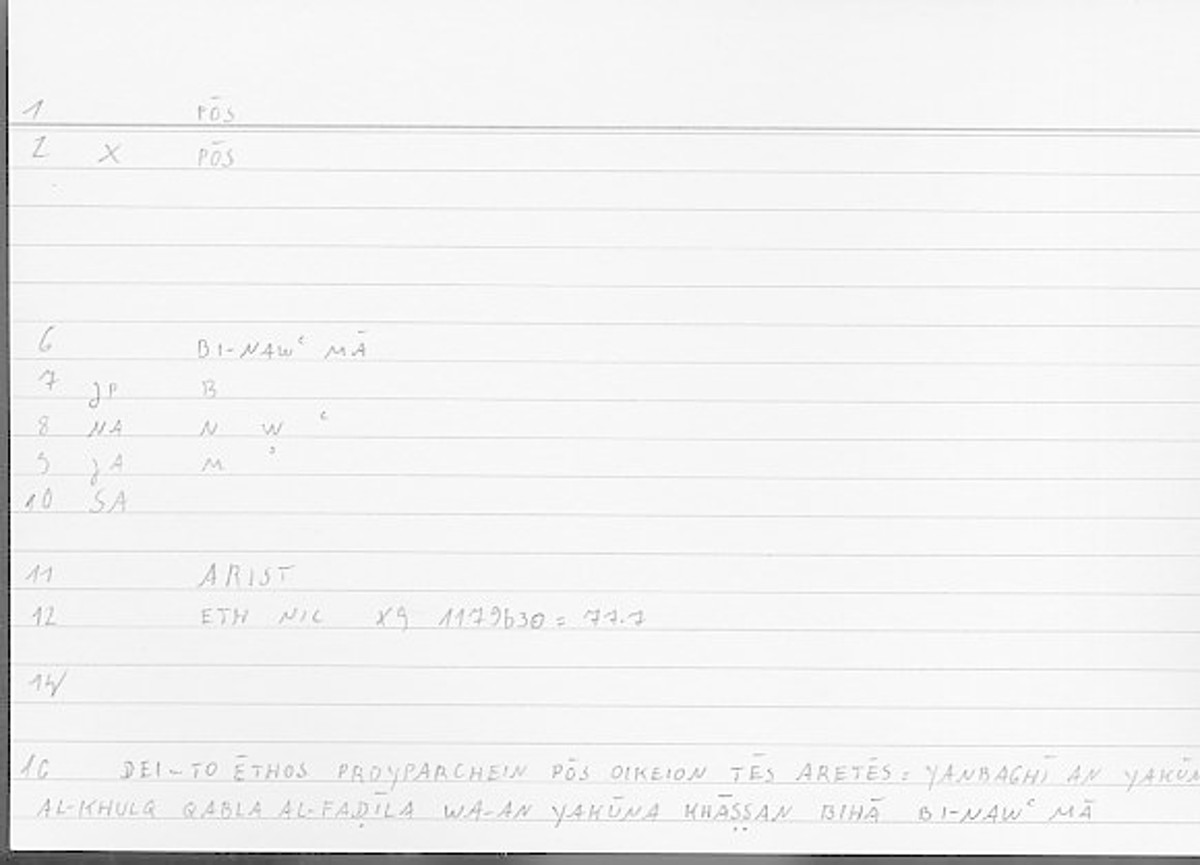 1 PŌS
2 X PŌS
6 BI-NAWʿ MĀ
7 JP B
8 NA N W ʿ
9 JA M ʾ
10 SA
11 ARIST
12 ETH NIC X9 1179b30 = 77.7
14
16 DEI~TO ĒTHOS PROYPARCHEIN PŌS OIKEION TĒS ARETĒS : YANBAGHĪ AN YAKŪN
AL-KHULQ QABLA AL-FAḌĪLA WA-AN YAKŪNA KHĀṢṢAN BIHĀ BI-NAWʿ MĀ